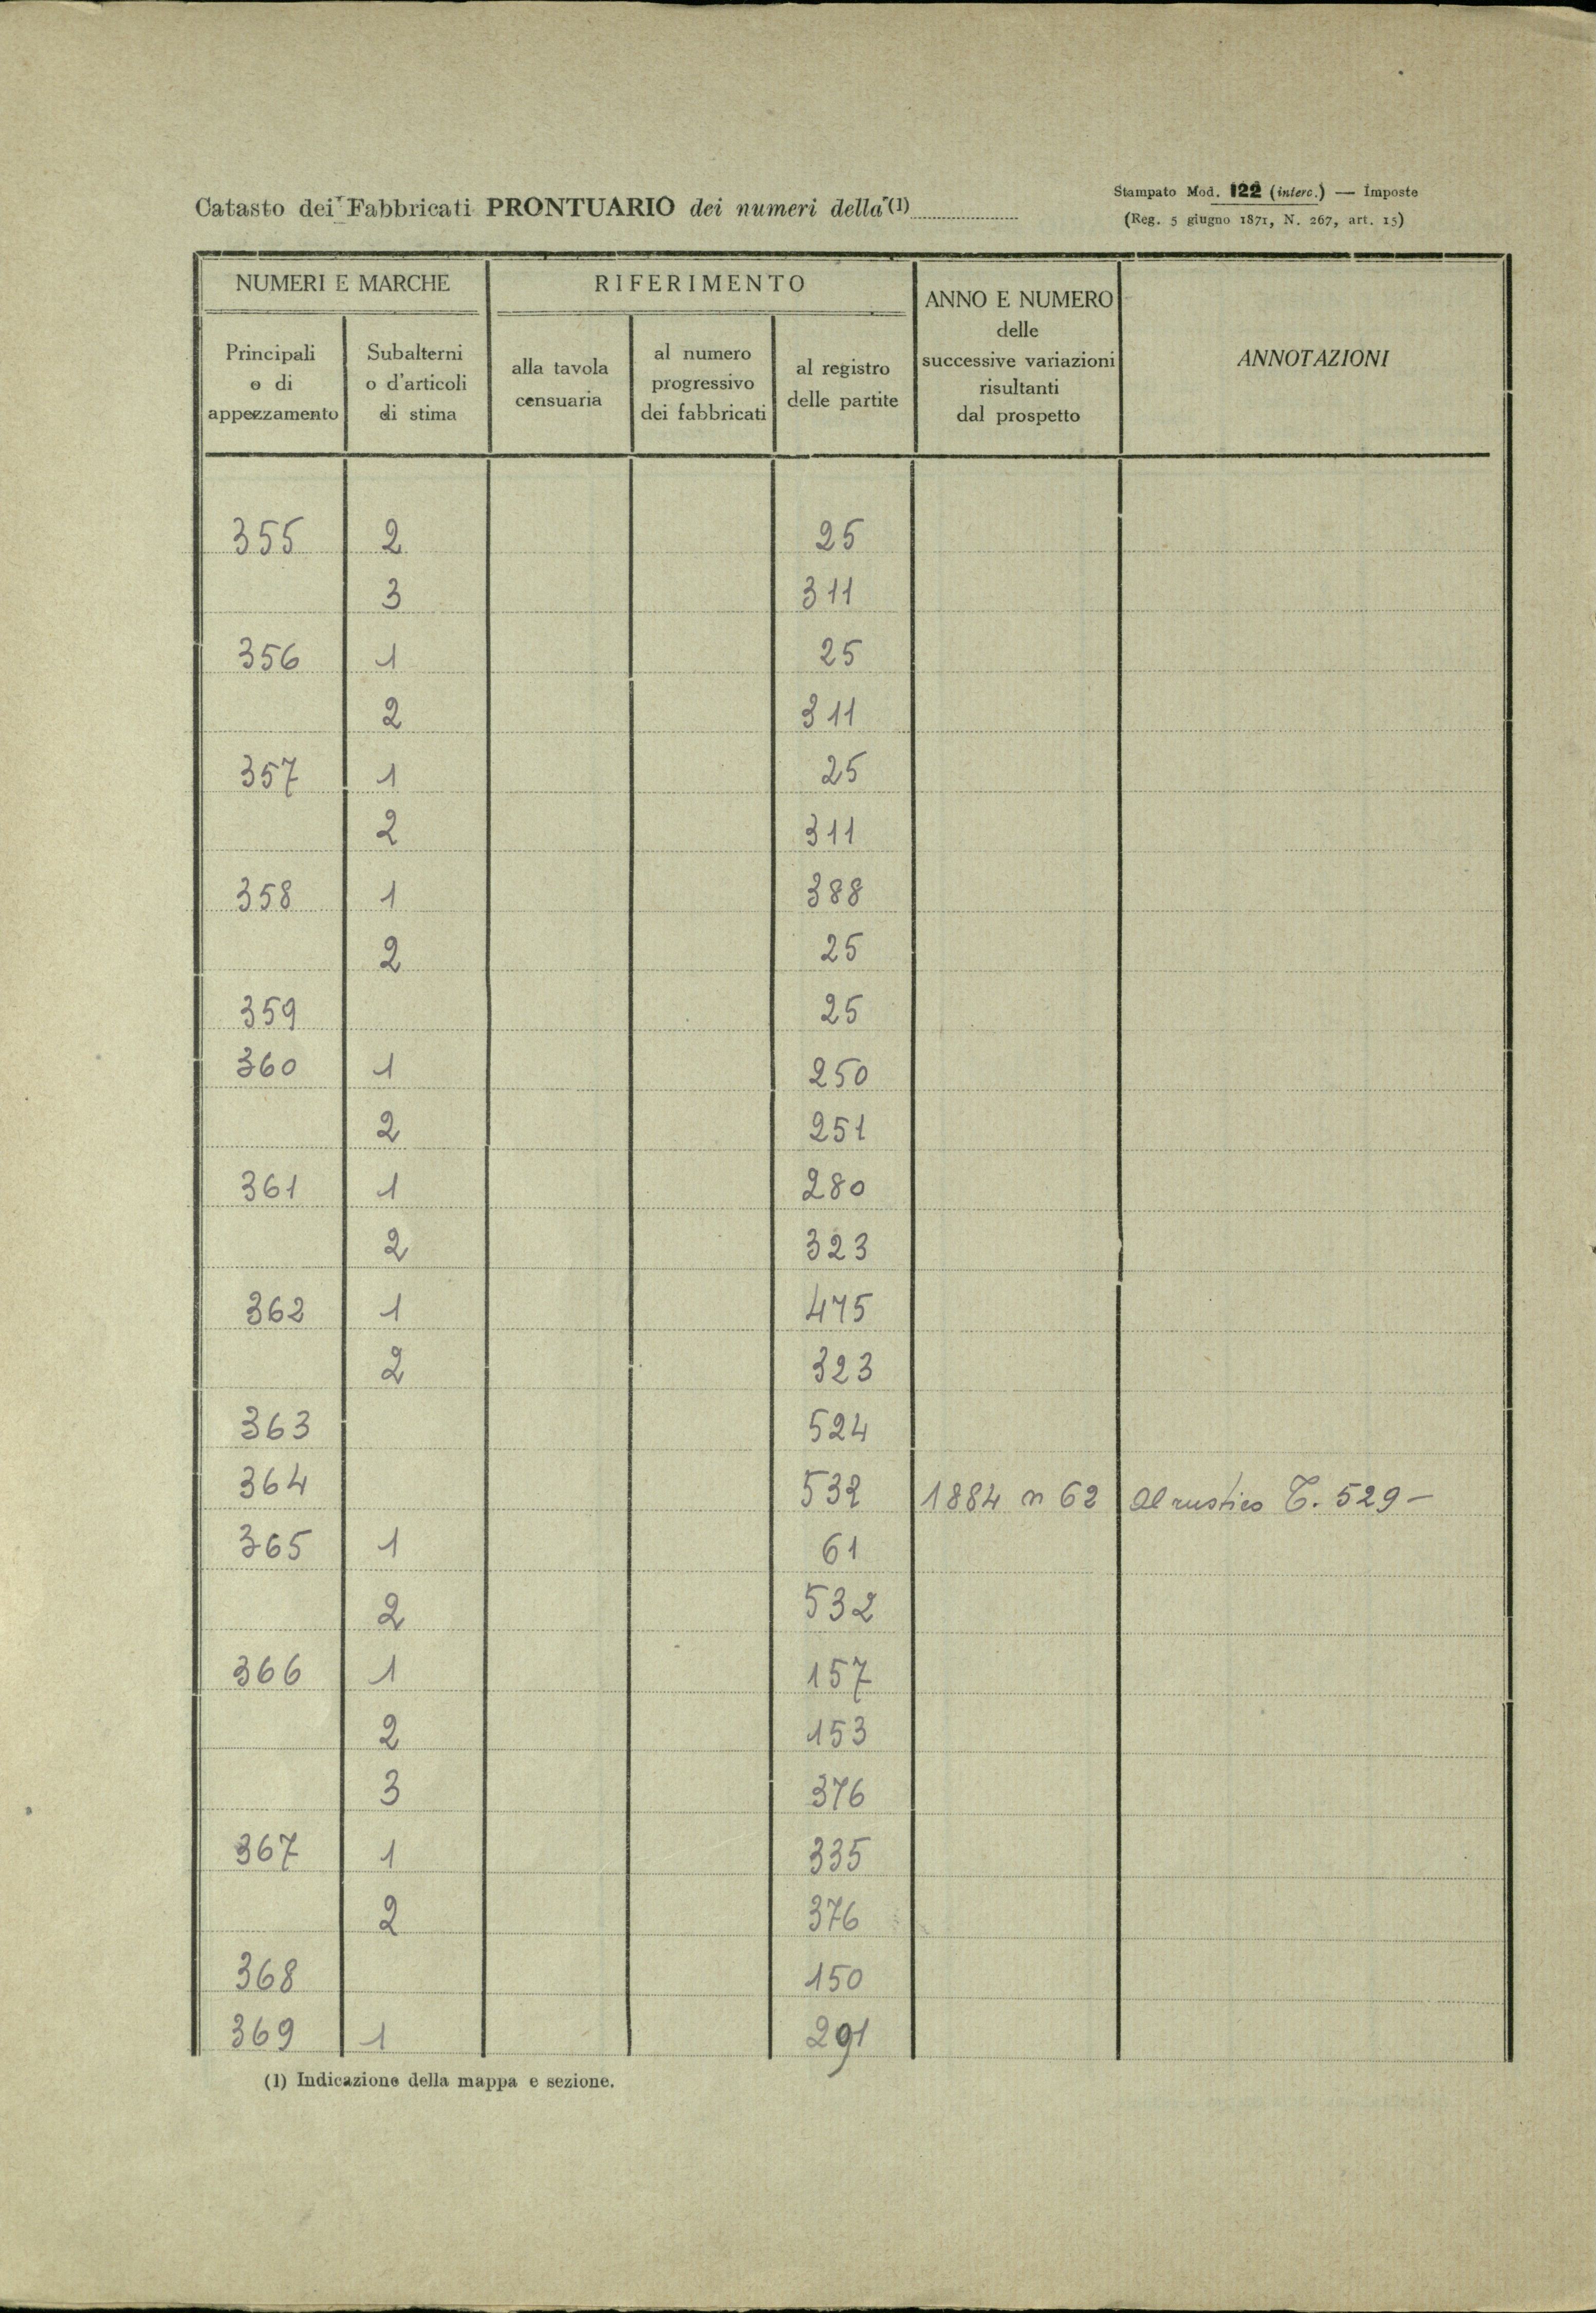 Catasto dei Fabbricati PRONTUARIO dei numeri della (1)
Stampato Mod. 122 (interc.) — Imposte
(Reg. 5 giugno 1871, N. 267, art. 15)
NUMERI E MARCHE
RIFERIMENTO
ANNO E NUMERO
delle
successive variazioni
risultanti
dal prospetto
ANNOTAZIONI
Principali
o di
appezzamento
Subalterni
o d'articoli
di stima
alla tavola
censuaria
al numero
progressivo
dei fabbricati
al registro
delle partite
355 2 25
3 311
356 1 25
2 311
357 1 25
2 311
358 1 388
2 25
359 25
360 1 250
2 251
361 1 280
2 323
362 1 475
2 323
363 524
364 532 1884 n 62 Al rustico T. 529 —
365 1 61
2 532
366 1 157
2 153
3 376
367 1 335
2 376
368 150
369 1 291
(1) Indicazione della mappa e sezione.